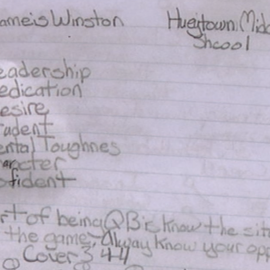 ameis Winston
Hueytown Midd
Shcool
eadership
edication
esire
rudent
ental Toughnes
aracter
ofident
rt of being QB is know the sit
the game, Alway know your opp
Cover 3 4 4